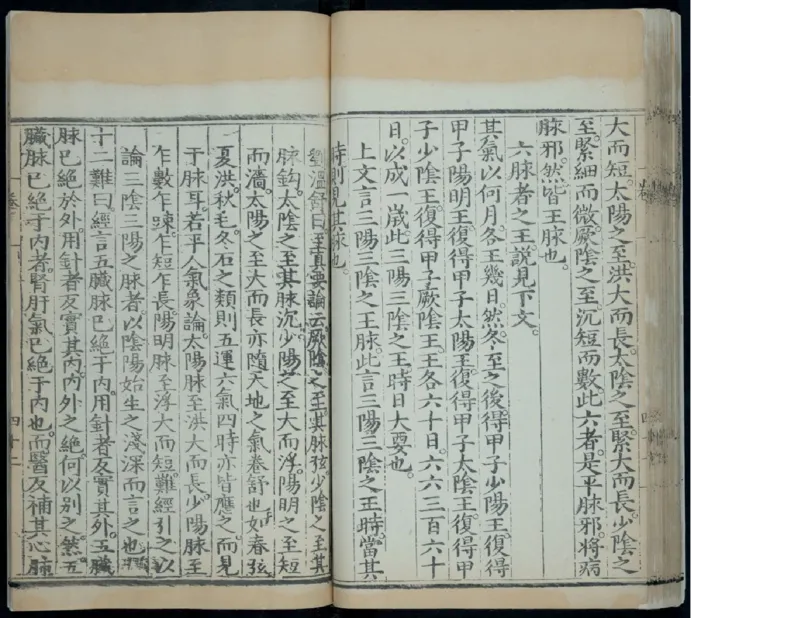 大而短。太陽之至。洪大而長。太陰之至。緊大而長。少陰之
至。緊細而微。厥陰之至。沉短而數。此六者。是平脉邪。將病
脉邪。然。皆王脉也。
六脉者之王。説見下文。
其氣以何月。各王幾日。然。冬至之後。得甲子少陽王。復得
甲子陽明王。復得甲子太陽王。復得甲子太陰王。復得甲
子少陰王。復得甲子厥陰王。王各六十日。六六三百六十
日。以成一歲。此三陽三陰之王時日大要也。
上文言三陽三陰之王脉。此言三陽三陰之王時。當其
時則見其脉也。
劉溫舒曰。至真要論云。厥陰之至。其脉弦。少陰之至。其
脉鈎。太陰之至。其脉沉。少陽之至。大而浮。陽明之至。短
而濇。太陽之至。大而長。亦隨天地之氣卷舒也。如春弦
夏洪。秋毛。冬石之類。則五運六氣四時亦皆應之。而見
于脉耳。若平人氣象論。太陽脉至。洪大而長。少陽脉至
乍數乍踈。乍短乍長。陽明脉至。浮大而短。難經引之以
論三陰三陽之脉者。以陰陽始生之淺深而言之也。
十二難曰。經言五臟脉已絶于内。用針者反實其外。五臟
脉已絶於外。用針者反實其内。内外之絶。何以别之。然。五
臟脉已絶于内者。腎肝氣已絶于内也。而醫反補其心肺
四十二